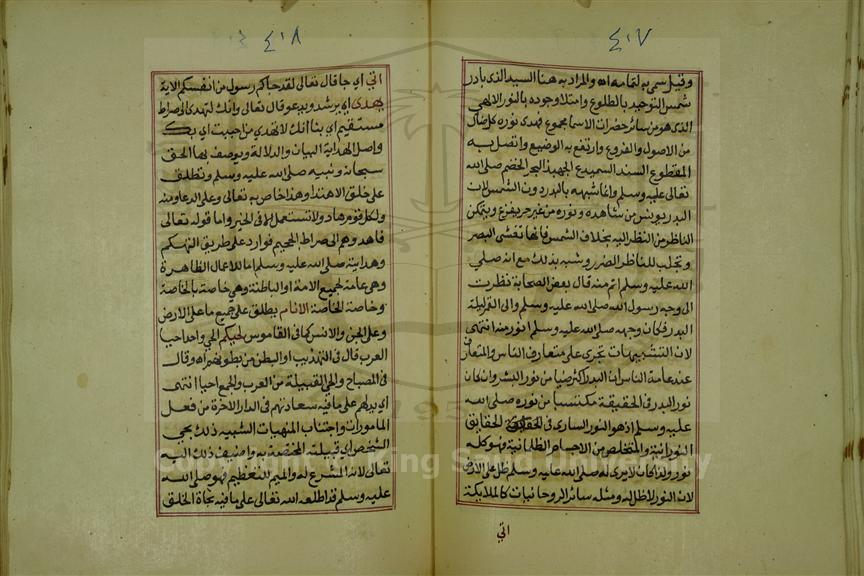 ٤٠٧
وقيل سمي به لتمامه اه والمراد به هنا السيد الذي بادر
شمس التوحيد بالطلوع وامتلا وجوده بالنور الالهي
الذي هو من سائر حضرات الاسما مجموع فهدى نوره كل ضال
من الاصول والفروع وارتفع به الوضيع واتصل به
المقطوع السند السميدع الجهبذ البحر الخضم صلى الله
تعالى عليه وسلم وانما شبهه بالبدر دون الشمس لان
البدر يونس من شاهده ونوره من غير حر يفزع ويتمكن
الناظر من النظر اليه بخلاف الشمس فانها تغشى البصر
وتجلب للناظر الضرر وشبه بذلك مع انه صلى
الله عليه وسلم اتم منه قال بعض الصحابة نظرت
الى وجه رسول الله صلى الله عليه وسلم والى القمر ليلة
البدر فكان وجهه صلى الله عليه وسلم انور منه انتهى
لان التشبيهات تجري على متعارف الناس والمتعارف
عند عامة الناس ان البدر اكثر ضيا من نور البشر وان كان
نور البدر في الحقيقة مكتسبا من نوره صلى الله
عليه وسلم اذ هو النور الساري في الحقائق
النورانية والمتخلص من الاجسام الظلمانية فهو كله
نور ولذا كان لا يرى له صلى الله عليه وسلم ظل على الارض
لان النور لا ظل له ومثله سائر الروحانيات كالملايكة
اتي
٤٠٨
اتي اي جا قال تعالى لقد جاكم رسول من انفسكم الاية
يهدى اي يرشد ويدعو قال تعالى وانك لتهدي الى صراط
مستقيم اي بنا انك لا تهدي من احببت اي بك
واصل الهداية البيان والدلالة ويوصف بها الحق
سبحانه ونبيه صلى الله عليه وسلم وتطلق
على خلق الاهتدا وهذا خاص به تعالى وعلى الدعا ومنه
ولكل قوم هاد ولا تستعمل الا في الخير واما قوله تعالى
فاهدوهم الى صراط الجحيم فوارد على طريق التهكم
وهدايته صلى الله عليه وسلم اما للاعمال الظاهرة
وهي عامة لجميع الامة او الباطنة وهي خاصة بالخاصة
وخاصة الخاصة الانام يطلق على جميع ما على الارض
وعلى الجن والانس كما في القاموس لحيكم الحي واحد احيا
العرب قال في التهذيب او البطن من بطونهم اه وقال
في المصباح والحي القبيلة من العرب والجمع احيا انتهى
اي يدلهم على ما فيه سعادتهم في الدار الاخرة من فعل
المامورات واجتناب المنهيات الشبيه ذلك بحي
الشخص اي قبيلته المختصة به واضيف ذلك اليه
تعالى لانه المشرع له والميم للتعظيم فهو صلى الله
عليه وسلم قد اطلعه الله تعالى على ما فيه نجاة الخلق